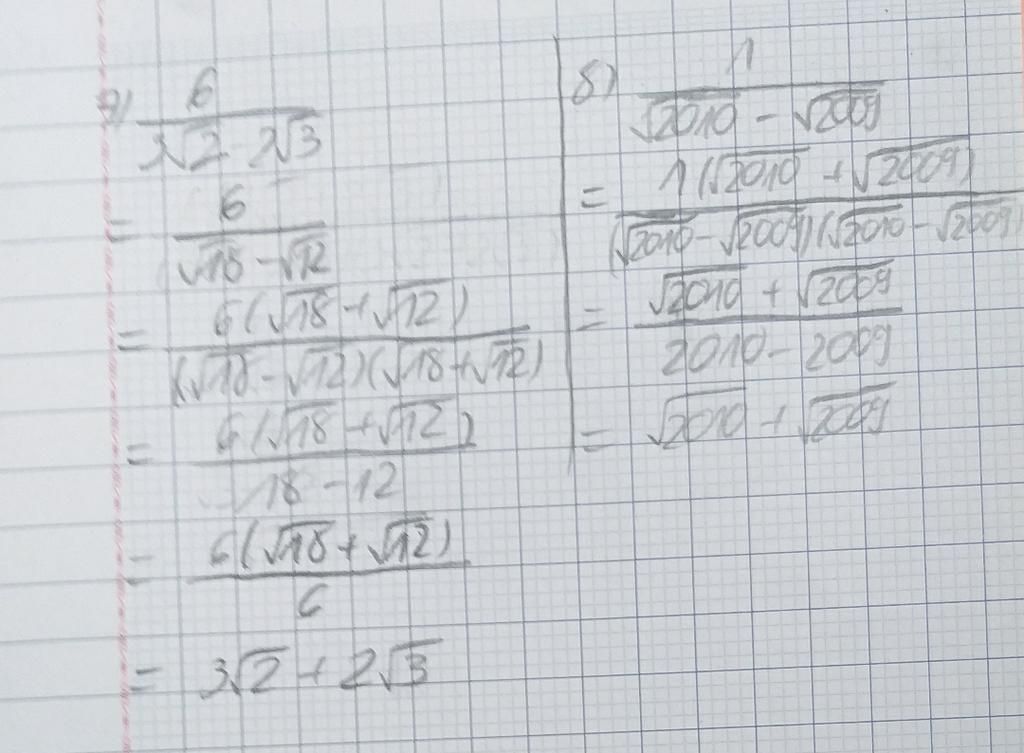 a) 6/(3√2 - 2√3)
= 6/(√18 - √12)
= 6(√18 + √12)/((√18 - √12)(√18 + √12))
= 6(√18 + √12)/(18 - 12)
= 6(√18 + √12)/6
= 3√2 + 2√3
б) 1/(√2010 - √2009)
= 1(√2010 + √2009)/((√2010 - √2009)(√2010 - √2009))
= (√2010 + √2009)/(2010 - 2009)
= √2010 + √2009